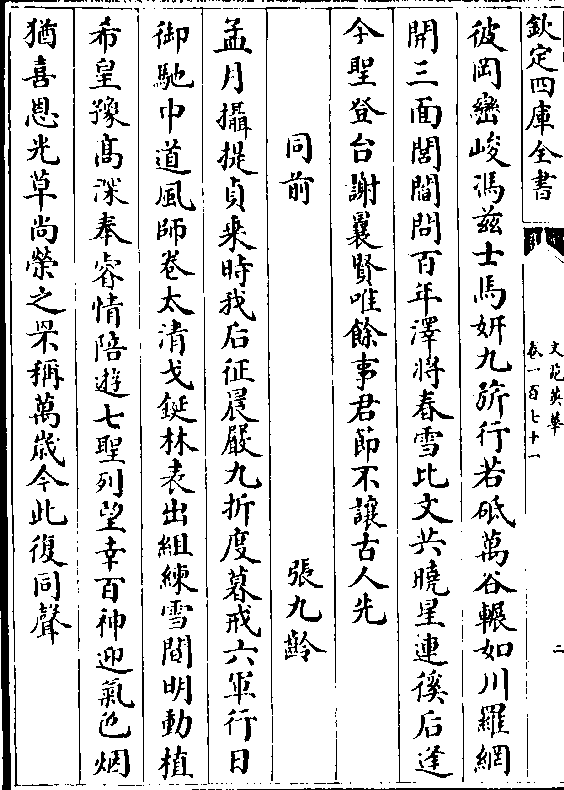 欽定四庫全書
文苑英華
卷一百七十一
二
彼岡巒峻馮茲士馬妍九斿行若砥萬谷輾如川羅網
開三面閭閻問百年澤將春雪比文共曉星連徯后逢
今聖登台謝曩賢唯餘事君節不讓古人先
同前
張九齡
孟月攝提貞来時我后征晨嚴九折度暮戒六軍行日
御馳中道風師卷太清戈鋋林表出組練雪間明動植
希皇豫髙深奉睿情陪遊七聖列望幸百神迎氣色烟
猶喜恩光草尚榮之罘稱萬歳今此復同聲